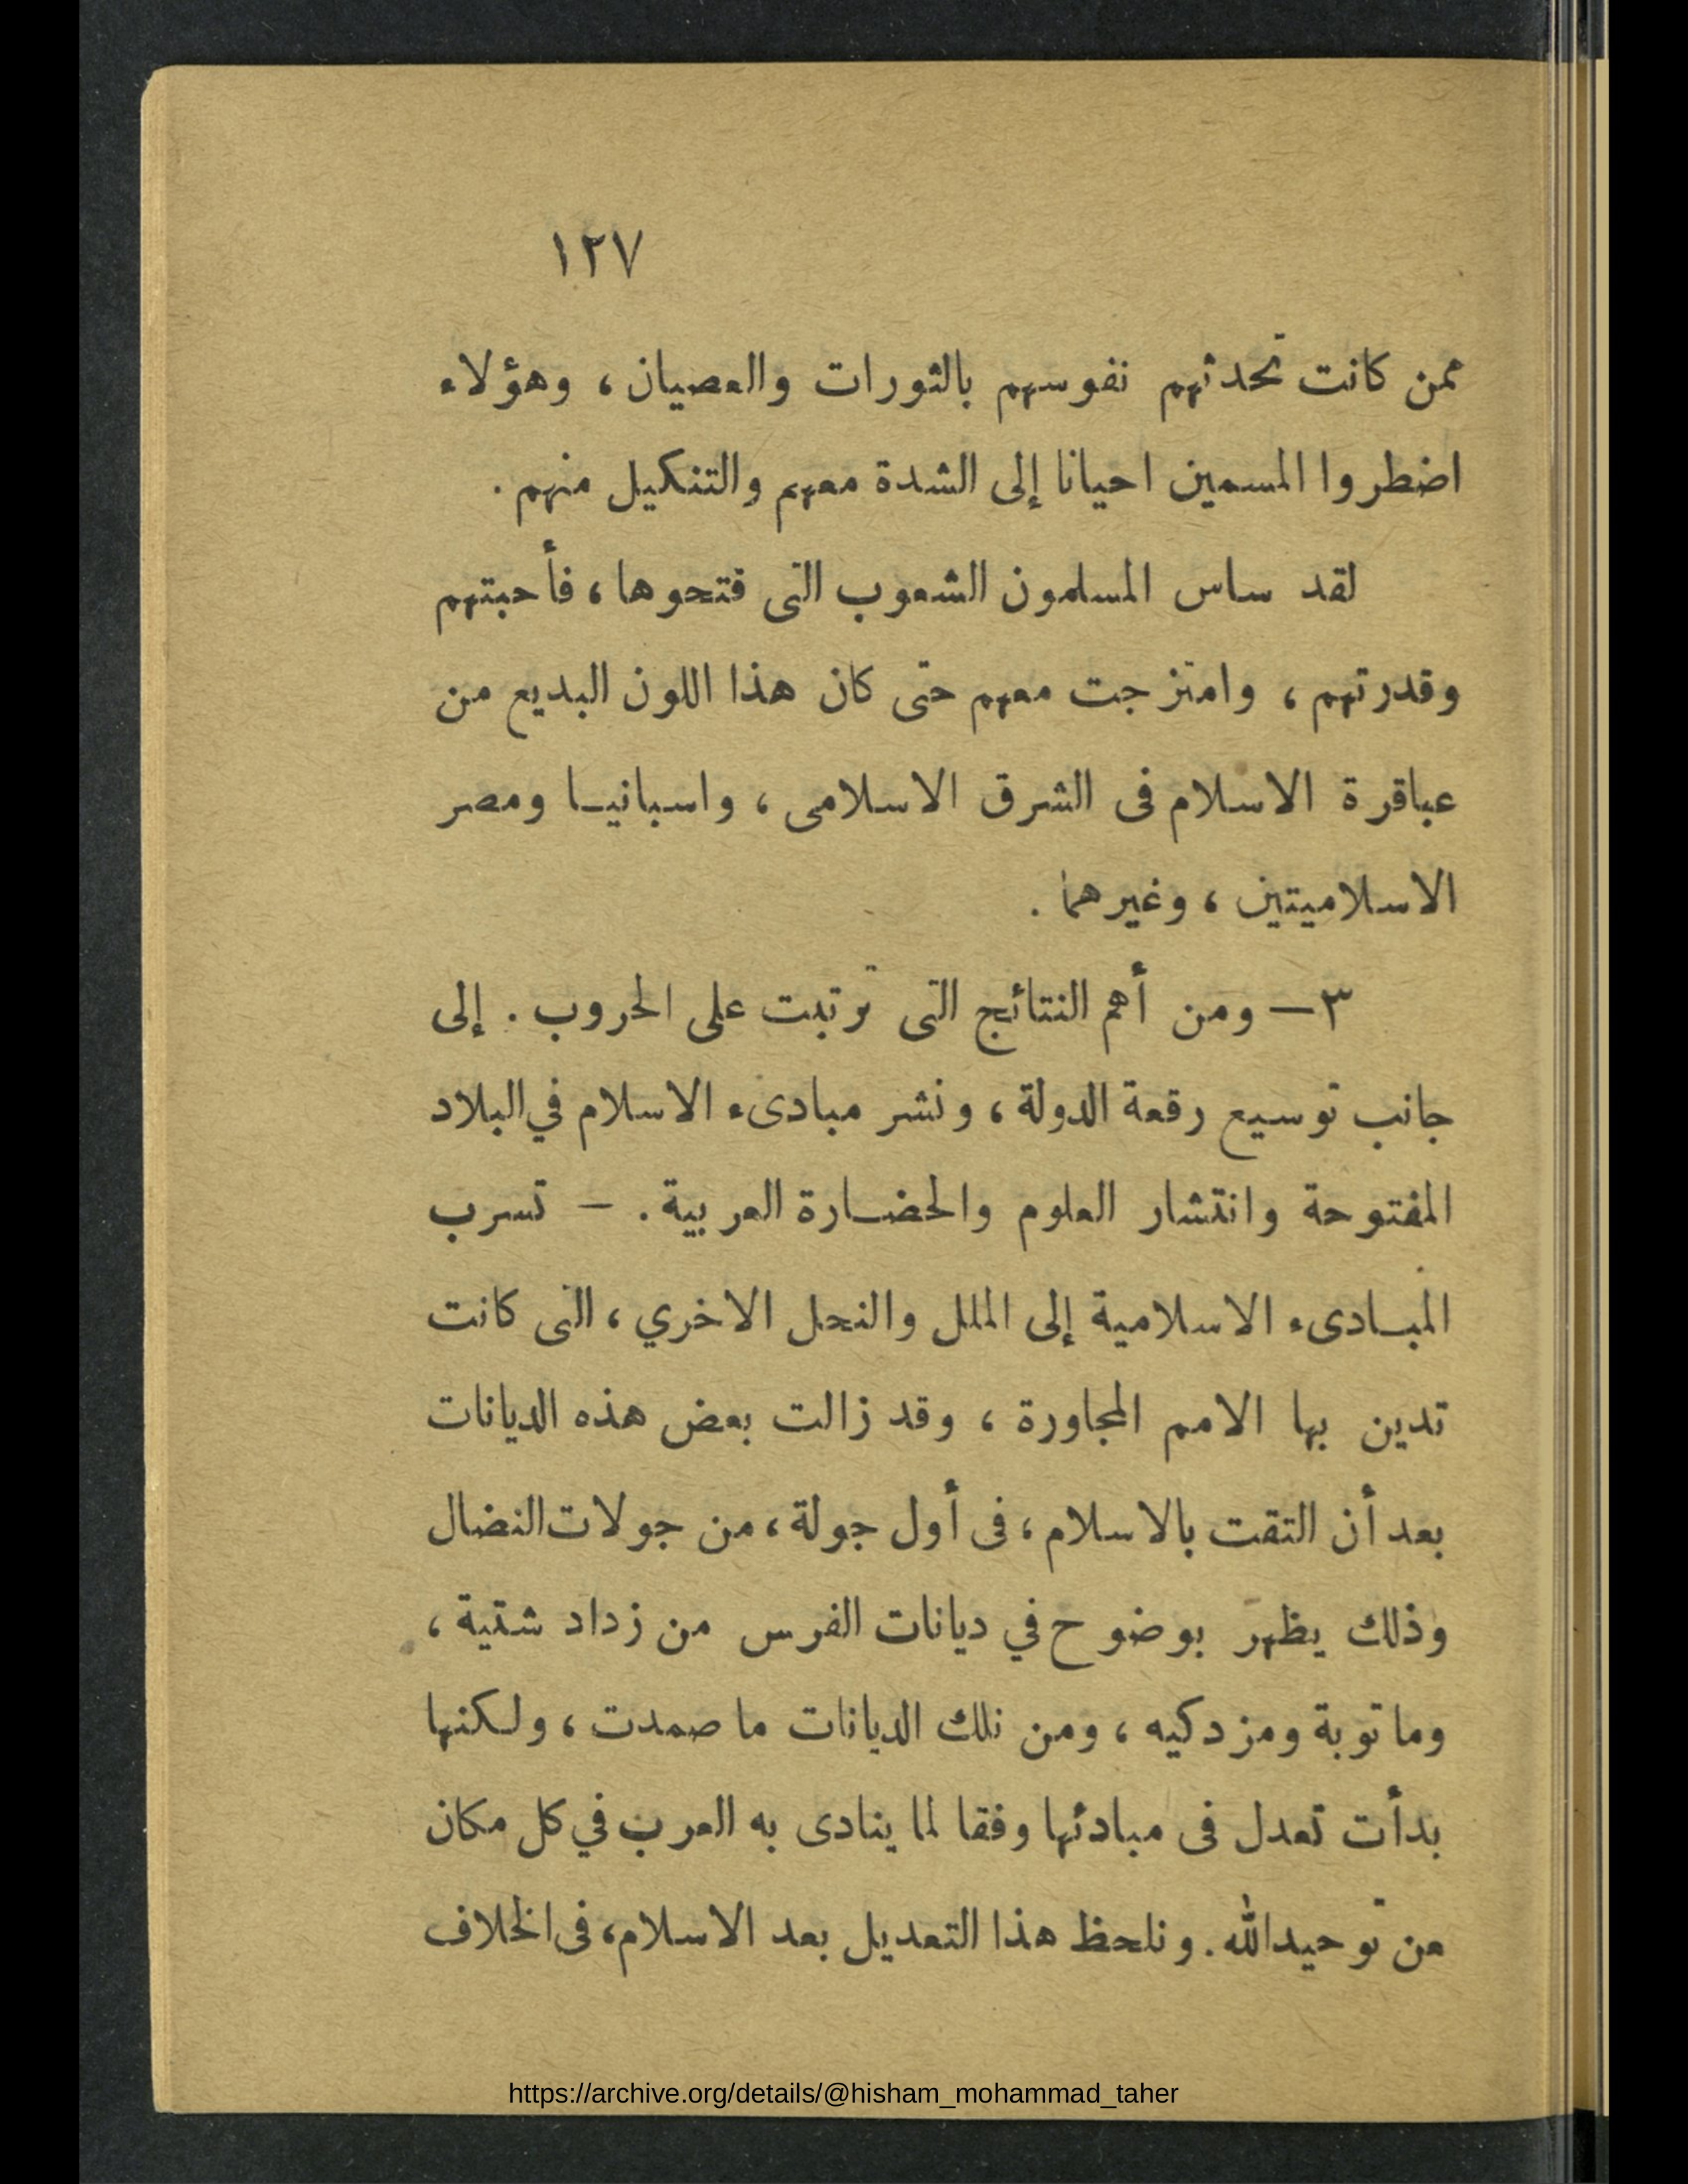 ١٢٧
ممن كانت تحدثهم نفوسهم بالثورات والعصيان ، وهؤلاء
اضطروا المسمين احيانا إلى الشدة معهم والتنكيل منهم .
لقد ساس المسلمون الشعوب التى فتحوها ، فأحبتهم
وقدرتهم ، وامتزجت معهم حتى كان هذا اللون البديع من
عباقرة الاسلام فى الشرق الاسلامى ، واسبانيـا ومصر
الاسلاميتين ، وغيرهما .
٣ — ومن أهم النتائج التى ترتبت على الحروب . إلى
جانب توسيع رقعة الدولة ، ونشر مبادىء الاسلام في البلاد
المفتوحة وانتشار العلوم والحضـارة العربية . — تسرب
المبـادىء الاسلامية إلى الملل والنحل الاخري ، التى كانت
تدين بها الامم المجاورة ، وقد زالت بعض هذه الديانات
بعد أن التقت بالاسلام ، فى أول جولة ، من جولات النضال
وذلك يظهر بوضوح في ديانات الفرس من زداد شتية ،
وما توبة ومزدكيه ، ومن تلك الديانات ما صمدت ، ولـكنها
بدأت تعدل فى مبادئها وفقا لما ينادى به العرب في كل مكان
من توحيد الله . ونلحظ هذا التعديل بعد الاسلام ، فى الخلاف
https://archive.org/details/@hisham_mohammad_taher